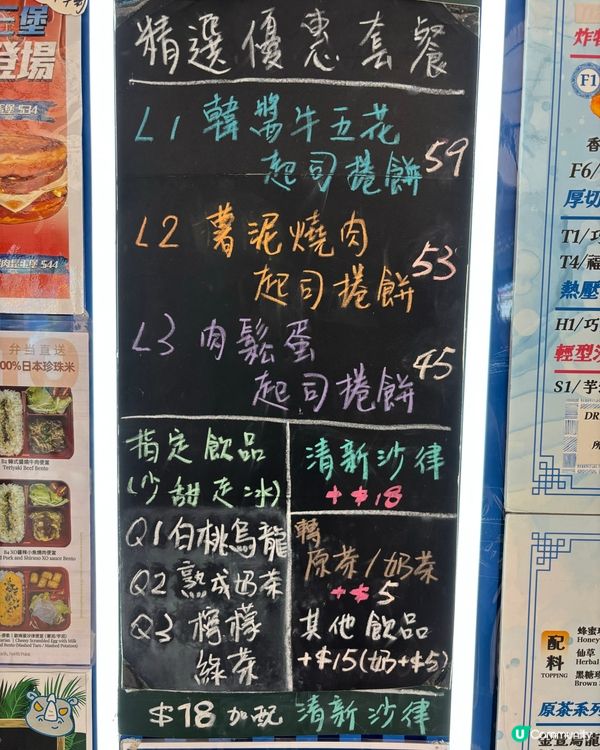 精選優惠套餐
L1 韓醬牛五花
起司捲餅 59
L2 薯泥燒肉
起司捲餅 53
L3 肉鬆蛋
起司捲餅 45
指定飲品
(少甜走冰)
Q1 白桃烏龍
Q2 熟成奶茶
Q3 檸檬
綠茶
清新沙律
+$18
轉
原茶/奶茶
+$5
其他飲品
+$15(奶+$5)
$18 加配 清新沙律
堡
登場
堡 $34
$44
弁当直送
100%日本珍珠米
Teriyaki Beef Bento
炸
F1
香
F6/
厚切
T1/巧
T4/福
熱壓
H1/巧
輕型
S1/芋
DR
所
配料
TOPPING
蜂蜜
Honey
仙草
Herbal
黑糖
Brown
原茶系列
U Community